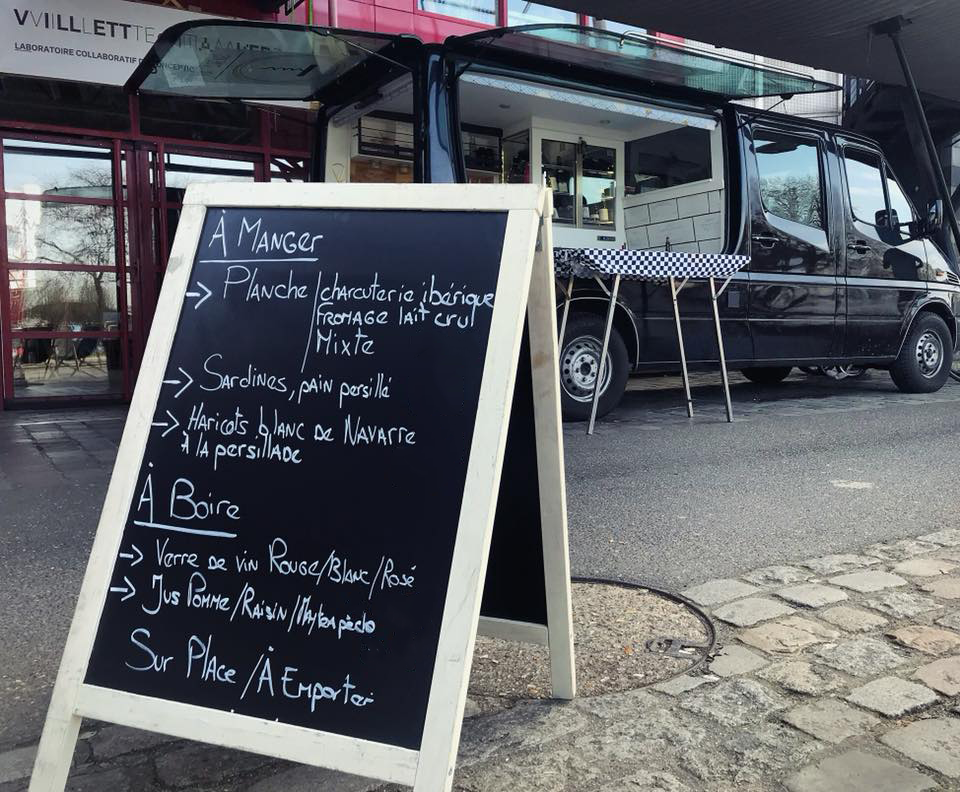 VVIILLLETTE
LABORATOIRE COLLABORATIF
À MANGER
→ PLANCHE / charcuterie ibérique
FROMAGE lait cru
Mixte
→ SARdines, pain persillé
→ HARicots blanc de NAVARRE
À lA persillade
À Boire
→ Verre de vin Rouge/Blanc/Rosé
→ Jus Pomme/RAisin/
Sur PlAce / À Emporter